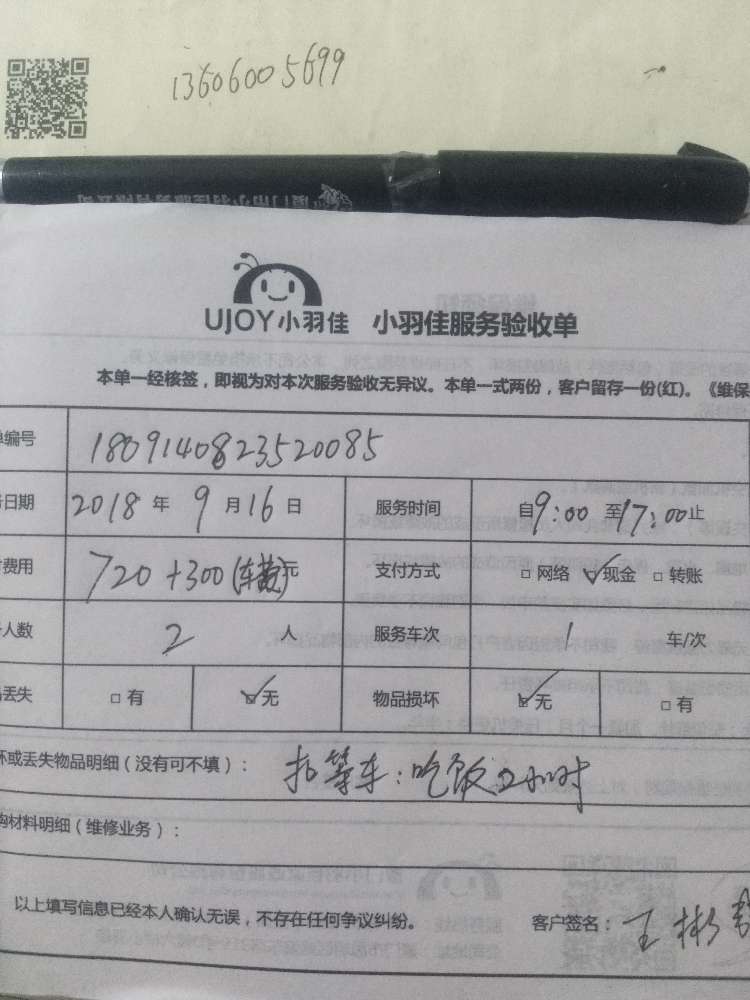 13606005699
UJOY小羽佳 小羽佳服务验收单
本单一经核签，即视为对本次服务验收无异议。本单一式两份，客户留存一份(红)。《维保
单编号 1809140823520085
务日期 2018 年 9 月 16 日 服务时间 自9:00 至17:00止
费用 720+300(车费)元 支付方式 □ 网络 ☑ 现金 □ 转账
人数 2 人 服务车次 1 车/次
丢失 □ 有 ☑ 无 物品损坏 ☑ 无 □ 有
坏或丢失物品明细（没有可不填）： 扣等车：吃饭2小时
购材料明细（维修业务）：
以上填写信息已经本人确认无误，不存在任何争议纠纷。 客户签名： 王彬